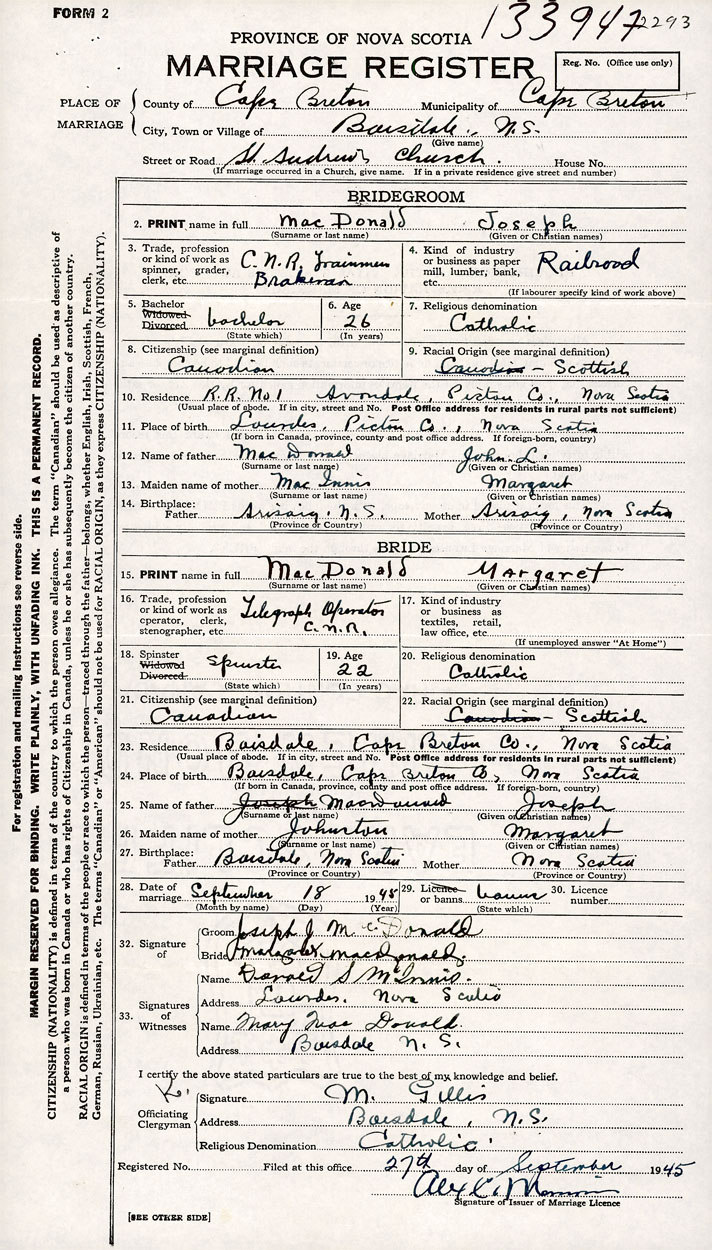 FORM 2
133947 2293
PROVINCE OF NOVA SCOTIA
MARRIAGE REGISTER
Reg. No. (Office use only)
PLACE OF MARRIAGE
County of Cape Breton Municipality of Cape Breton
City, Town or Village of Boisdale, N.S.
(Give name)
Street or Road St. Andrew's Church. House No.
(If marriage occurred in a Church, give name. If in a private residence give street and number)
BRIDEGROOM
2. PRINT name in full MacDonald Joseph
(Surname or last name) (Given or Christian names)
3. Trade, profession or kind of work as spinner, grader, clerk, etc. C.N.R. Trainmen Brakeman
4. Kind of industry or business as paper mill, lumber, bank, etc. Railroad
(If labourer specify kind of work above)
5. Bachelor Widowed Divorced bachelor
(State which)
6. Age 26
(In years)
7. Religious denomination Catholic
8. Citizenship (see marginal definition) Canadian
9. Racial Origin (see marginal definition) Canadian - Scottish
10. Residence R.R. No 1 Avondale, Pictou Co., Nova Scotia
(Usual place of abode. If in city, street and No. Post Office address for residents in rural parts not sufficient)
11. Place of birth Lourdes, Pictou Co., Nova Scotia
(If born in Canada, province, county and post office address. If foreign-born, country)
12. Name of father MacDonald John L.
(Surname or last name) (Given or Christian names)
13. Maiden name of mother Mac Innis Margaret
(Surname or last name) (Given or Christian names)
14. Birthplace: Father Arisaig. N.S. Mother Arisaig, Nova Scotia
(Province or Country) (Province or Country)
BRIDE
15. PRINT name in full MacDonald Margaret
(Surname or last name) (Given or Christian names)
16. Trade, profession or kind of work as operator, clerk, stenographer, etc. Telegraph Operator C.N.R.
17. Kind of industry or business as textiles, retail, law office, etc.
(If unemployed answer "At Home")
18. Spinster Widowed Divorced spinster
(State which)
19. Age 22
(In years)
20. Religious denomination Catholic
21. Citizenship (see marginal definition) Canadian
22. Racial Origin (see marginal definition) Canadian - Scottish
23. Residence Boisdale, Cape Breton Co., Nova Scotia
(Usual place of abode. If in city, street and No. Post Office address for residents in rural parts not sufficient)
24. Place of birth Boisdale, Cape Breton Co, Nova Scotia
(If born in Canada, province, county and post office address. If foreign-born, country)
25. Name of father Joseph Joseph
(Surname or last name) (Given or Christian names)
26. Maiden name of mother Johnston Margaret
(Surname or last name) (Given or Christian names)
27. Birthplace: Father Boisdale, Nova Scotia Mother Nova Scotia
(Province or Country) (Province or Country)
28. Date of marriage September 18 1945
(Month by name) (Day) (Year)
29. Licence or banns banns
(State which)
30. Licence number
32. Signature of
Groom Joseph J McDonald
Bride Margaret MacDonald.
33. Signatures of Witnesses
Name Donald S McInnis.
Address Lourdes. Nova Scotia
Name Mary MacDonald.
Address Boisdale N.S.
I certify the above stated particulars are to the best of my knowledge and belief.
Officiating Clergyman
Signature M. Gillis
Address Boisdale, N.S.
Religious Denomination Catholic
Registered No. Filed at this office 27th day of September 1945
Signature of Issuer of Marriage Licence
[SEE OTHER SIDE]
For registration and mailing instructions see reverse side.
MARGIN RESERVED FOR BINDING. WRITE PLAINLY, WITH UNFADING INK. THIS IS A PERMANENT RECORD.
CITIZENSHIP (NATIONALITY) is defined in terms of the country to which the person owes allegiance. The term "Canadian" should be used as descriptive of
a person who was born in Canada or who has rights of Citizenship in Canada, unless he or she has subsequently become the citizen of another country.
RACIAL ORIGIN is defined in terms of the people or race to which the person—traced through the father—belongs, whether English, Irish, Scottish, French,
German, Russian, Ukrainian, etc. The terms "Canadian" or "American" should not be used for RACIAL ORIGIN, as they express CITIZENSHIP (NATIONALITY).